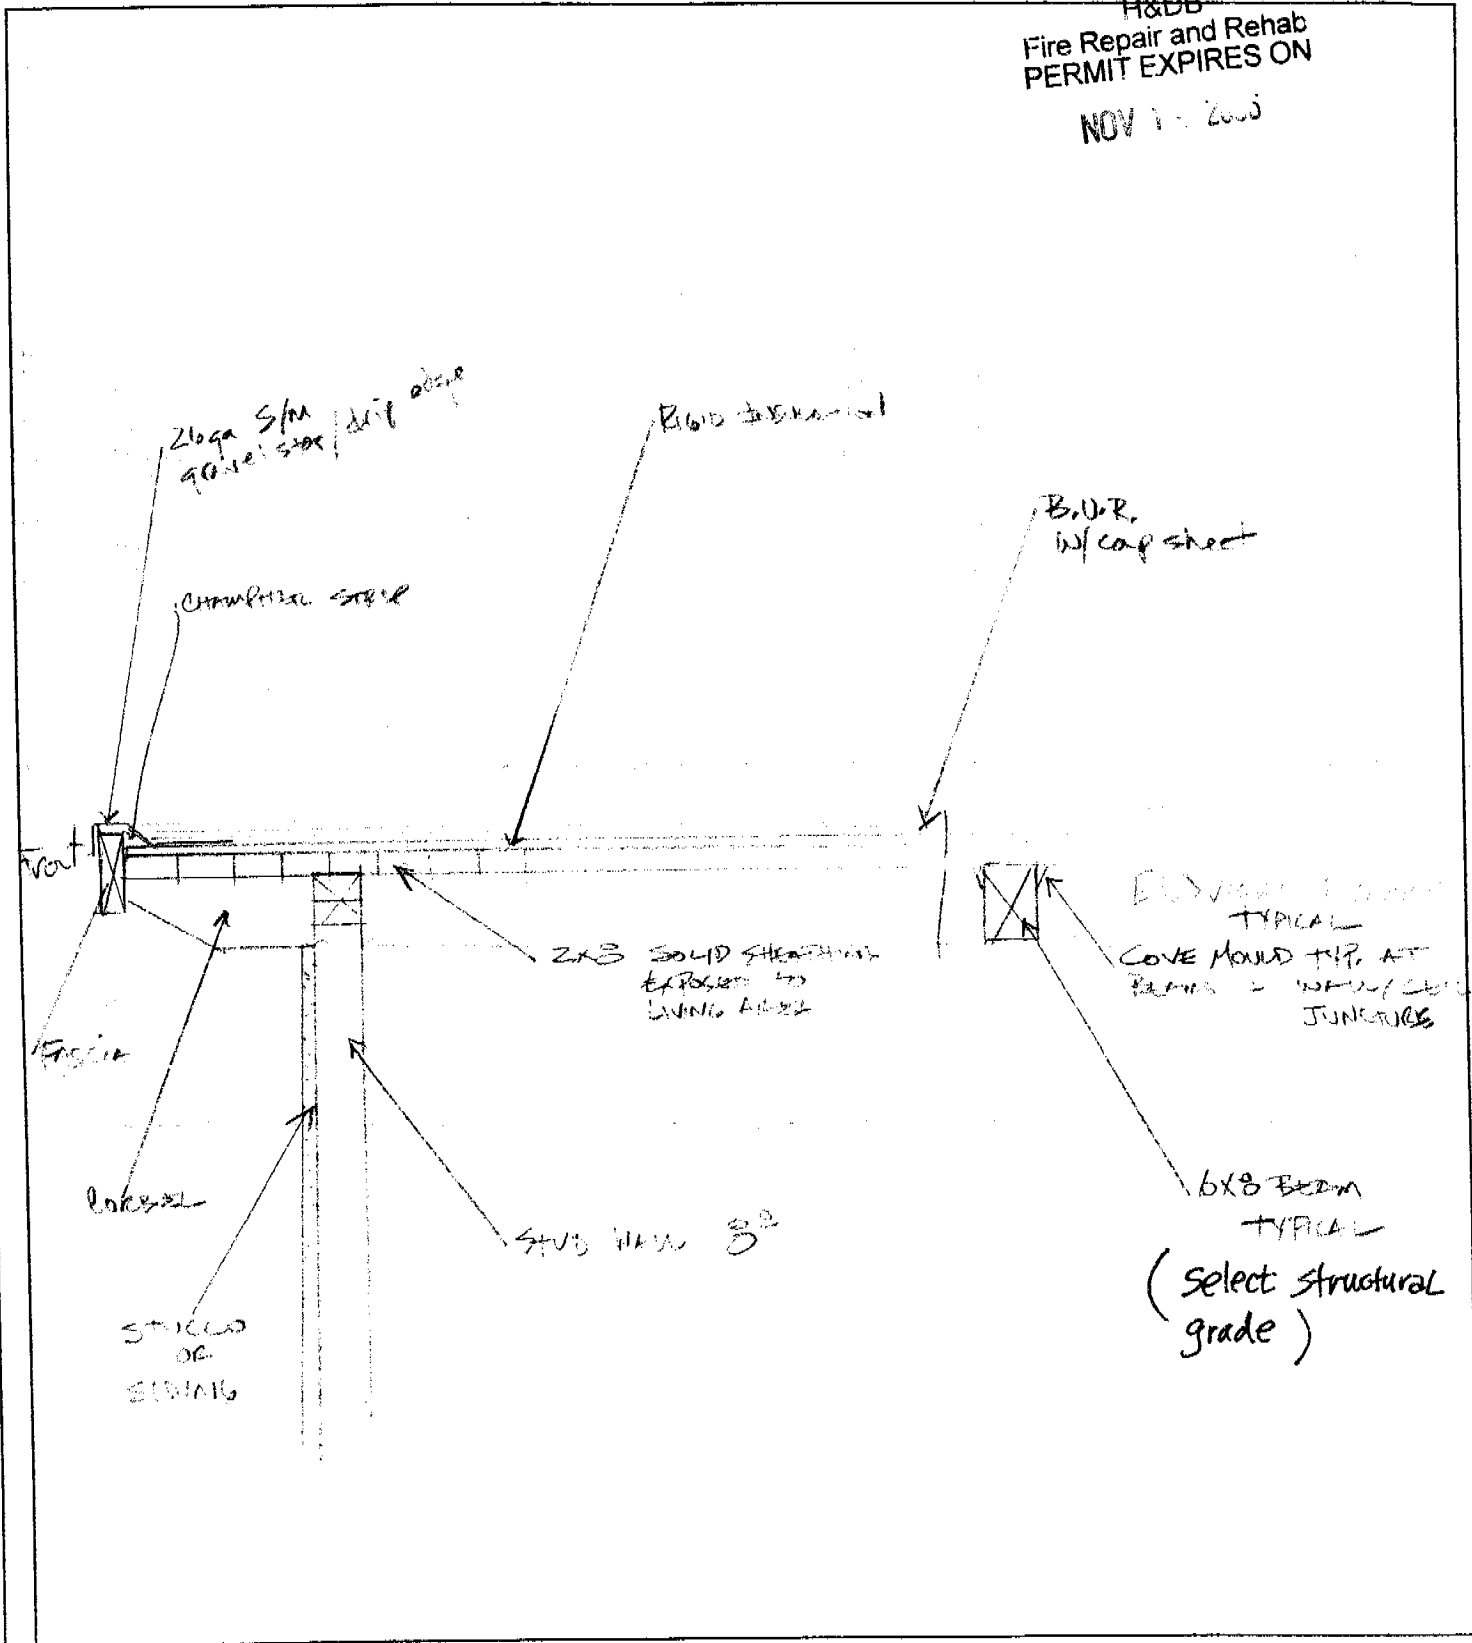 H&DB
Fire Repair and Rehab
PERMIT EXPIRES ON
NOV
26ga S/M
gravel stop / drip edge
RIGID
B.U.R.
w/ cap sheet
CHAMPHER STRIP
Front
TYPICAL
2x8 SOLID SHEATHING
EXPOSED TO
LIVING AREA
COVE MOULD TYP. AT
BEAMS & WALL/CEIL
JUNCTURE
FASCIA
CORBEL
STUD WALL 8º
6X8 BEAM
TYPICAL
(select structural
grade)
STUCCO
OR
SIDING